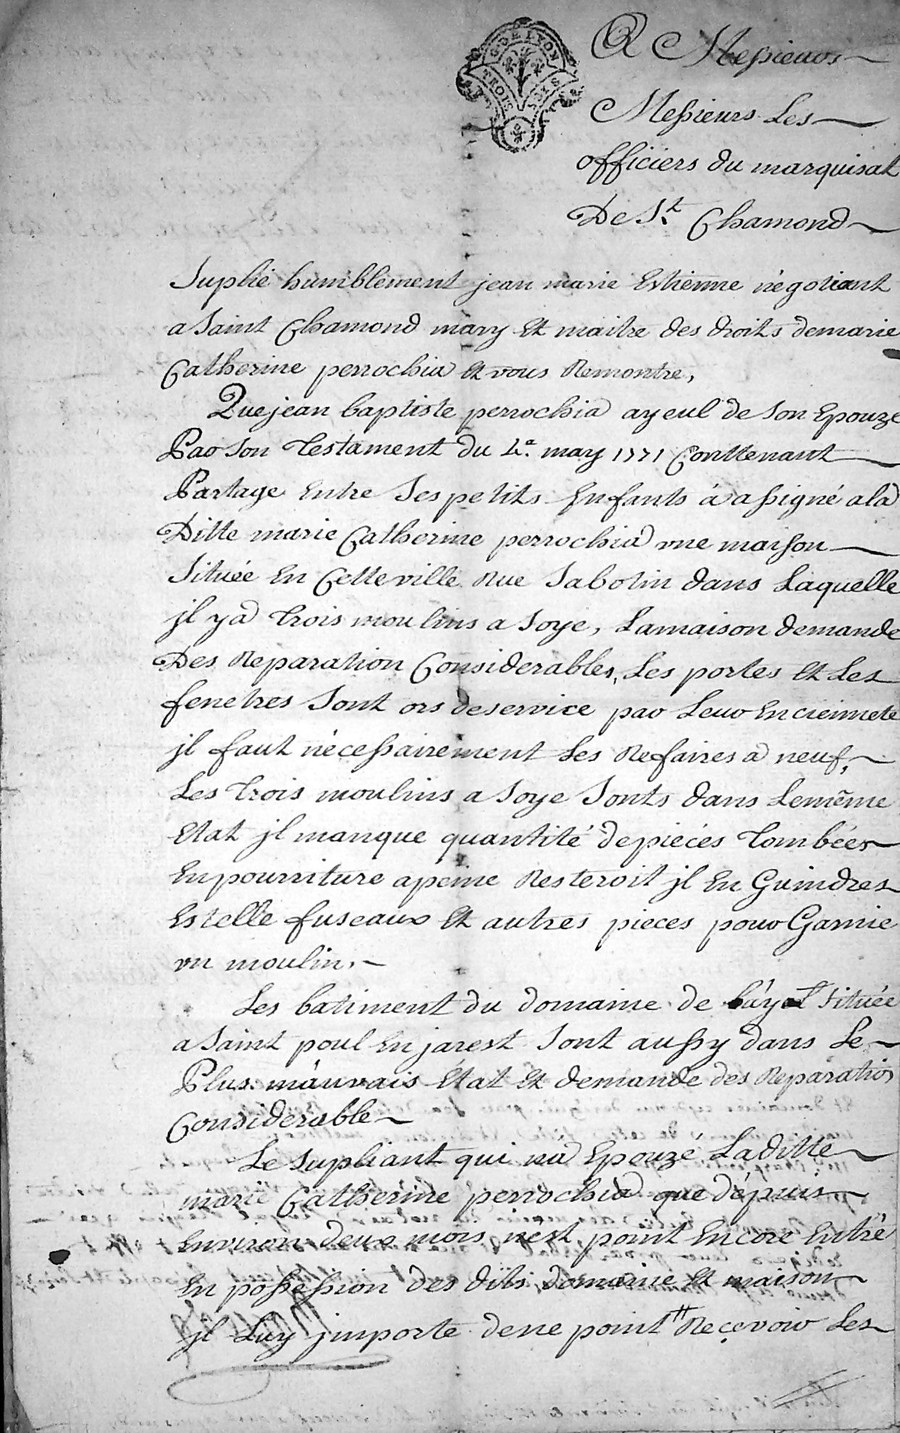 G. DE LYON
TROIS SOLS
A Messieurs
Messieurs Les
officiers du marquisat
De St. Chamond
Suplie humblement jean marie Estienne négotiant
a Saint Chamond mary Et maitre des droits demarie
Catherine perrochia Et vous Remontre,
Quejean baptiste perrochia ayeul de Son Epouze
Par Son Testament du 4e. may 1771 Conttenant
Partage Entre Ses petits Enfants à assigné ala
Ditte marie Catherine perrochia une maison
Située En Cette ville Rue Sabotin dans Laquelle
jl ya Trois moulins a Soye, Lamaison demande
Des Reparation Considerables, Les portes Et Les
fenetres Sont ors deservice par Leur Encienneté
jl faut nécessairement Les Refaires a neuf,
Les Trois moulins a Soye Sonts dans Lemême
Etat jl manque quantité depieces Tombées
En pourriture apeine Resteroit jl En Guindres
Estelle fuseaux Et autres pieces pour Garnie
un moulin.
Les batiment du domaine de Située
a Saint poul En jarest Sont aussy dans Le
Plus mauvais Etat Et demande des Reparation
Considerable
Le Supliant qui na Epouzé Laditte
marie Catherine perrochia que dépuis
Environ deux mois nest point Encore Entré
En possession des dits domaine Et maison
jl Luy jmporte dene point Reçevoir Les